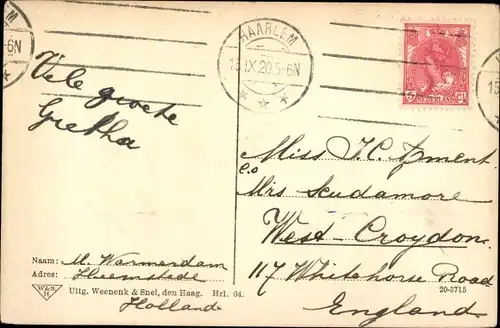 HAARLEM
13.IX 20.5-6N
5 NEDERLAND Ct
Vele groete
Gretha
Miss K.C.
c.o
Mrs Scudamore
West-Croydon.
117 Whitehorse Road
England
Naam: M. Warmerdam
Adres: Heemstede
Holland
20-3715
W&S H
Uitg. Weenenk & Snel, den Haag. Hrl. 64.